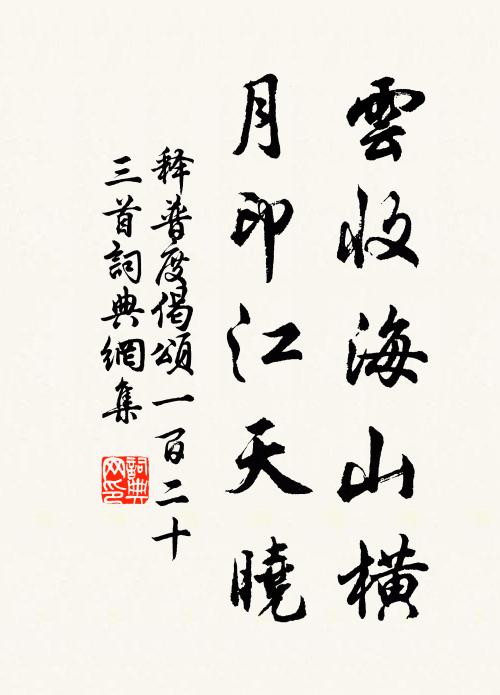 雲收海山橫
月印江天曉
释普度偈頌一百二十
三首詞典網集
詞典網印